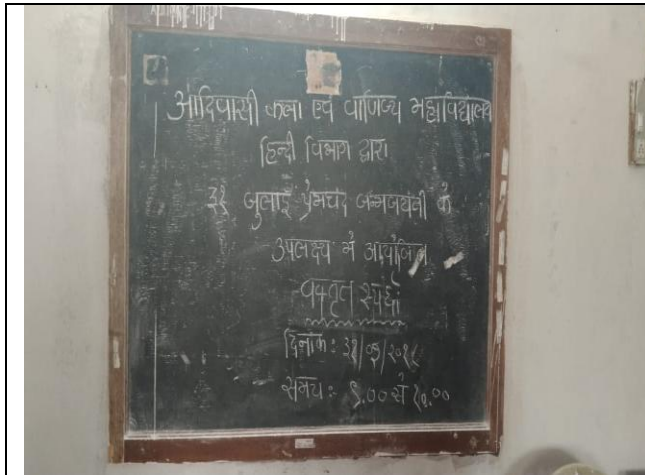 आदिवासी कला एवं वाणिज्य महाविद्यालय
हिन्दी विभाग द्वारा
३१ जुलाई प्रेमचंद जन्मजयंती के
उपलक्ष्य में आयोजित
वक्तृत्व स्पर्धा
दिनांक :
समय :- ९.०० से १०.००